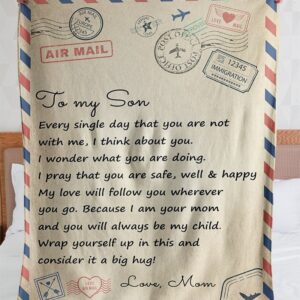 AIR MAIL
POST OFFICE
LOVE MAIL
12345
IMMIGRATION
To my Son
Every single day that you are not
with me, I think about you.
I wonder what you are doing.
I pray that you are safe, well & happy
My love will follow you wherever
you go. Because I am your mom
and you will always be my child.
Wrap yourself up in this and
consider it a big hug!
Love, Mom